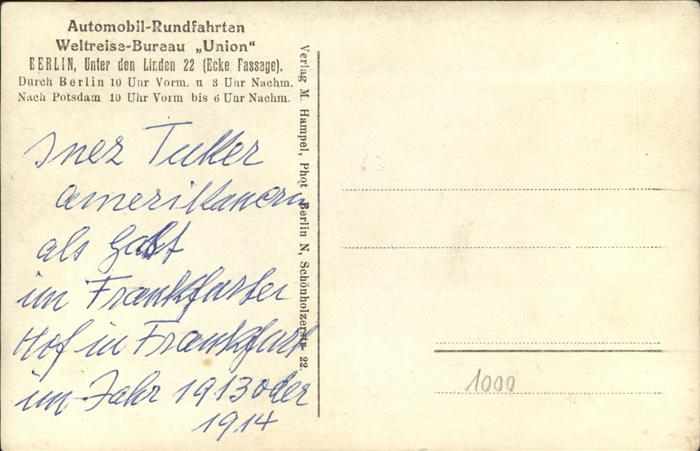 Automobil-Rundfahrten
Weltreise-Bureau „Union"
BERLIN, Unter den Linden 22 (Ecke Passage).
Durch Berlin 10 Uhr Vorm. u 3 Uhr Nachm.
Nach Potsdam 10 Uhr Vorm bis 6 Uhr Nachm.
Inez Tucker
Amerikanerin
als Gast
im Frankfurter
Hof in Frankfurt
im Jahr 1913 oder
1914
Verlag M. Hampel, Phot Berlin N, Schönholzerstr 22.
1000